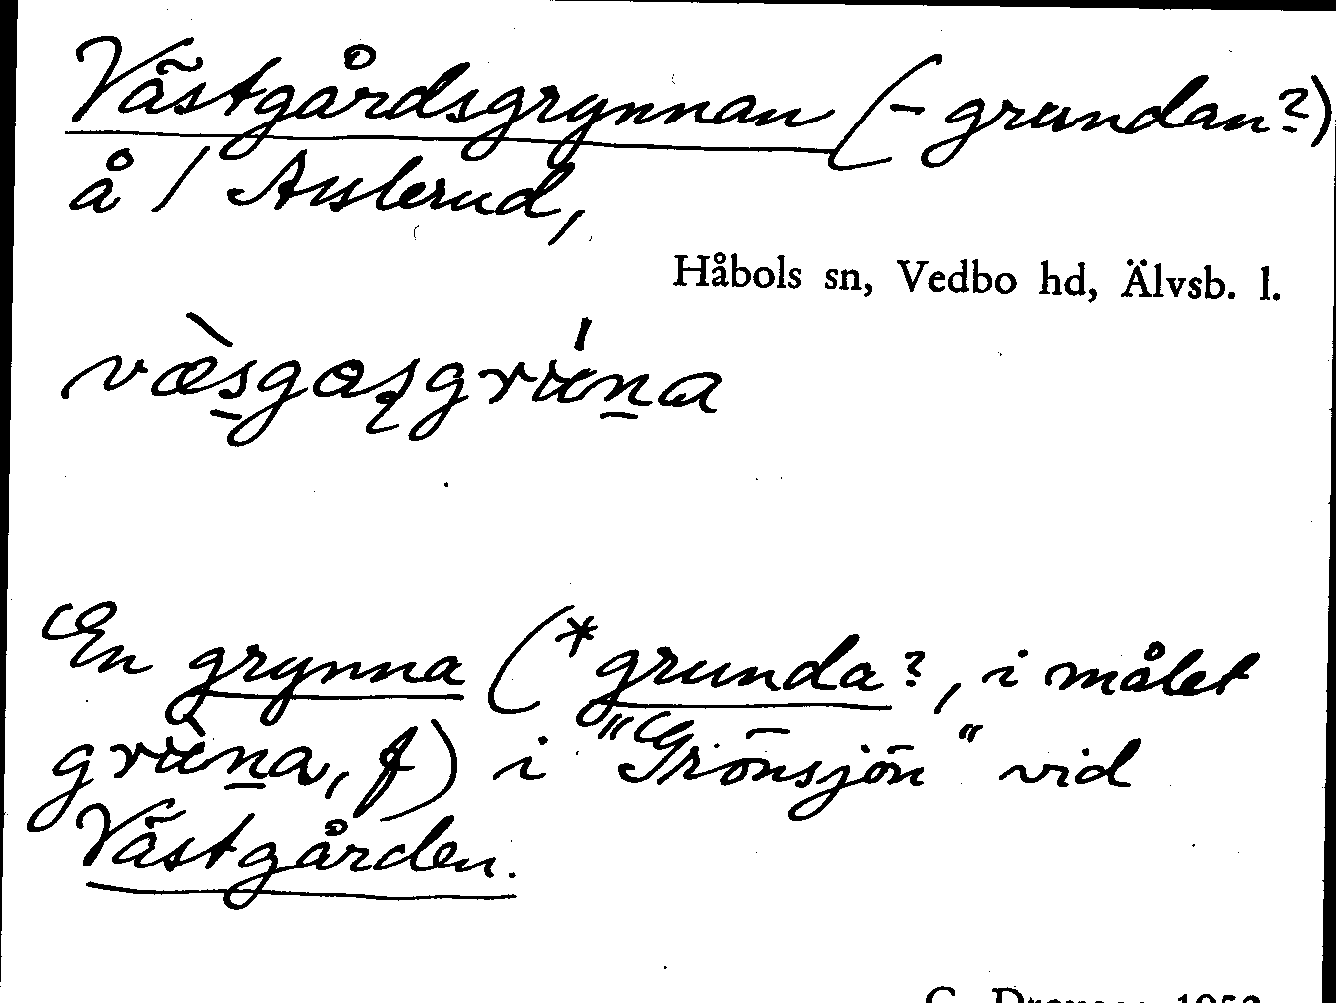 Västgårdsgrynnan (-grundan?)
å / Auslerud,
Håbols sn, Vedbo hd, Älvsb. l.
En grynna (*grunda?, i målet
f) i "Grönsjön" vid
Västgården.